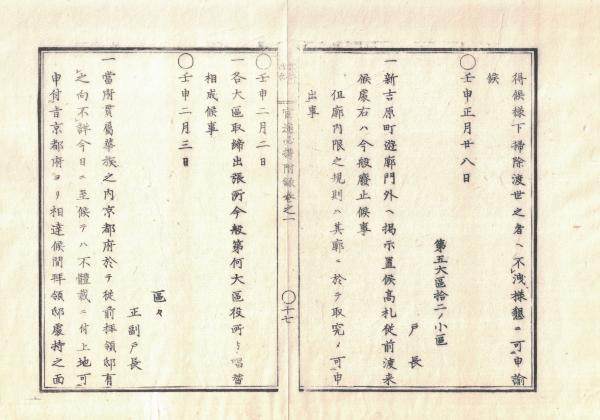 得候様下掃除渡世之者ヘ不洩様懇ニ可申諭
候
〇壬申正月廿八日
第五大區拾二ノ小區
戸長
一新吉原町遊廓門外ヘ掲示置候髙札従前渡来
候處右ハ今般廢止候事
但廓内限之規則ハ其廓ニ於テ取究メ可申
出事
官途必携附録巻之一
〇十七
〇壬申二月二日
一各大區取締出張所今般第何大區役所ト唱替
相成候事
〇壬申二月三日
區々
正副戸長
一當府貫屬華族之内京都府於テ従前拝領邸有
之向不詳今日ニ至候テハ不體裁ニ付上地可
申付旨京都府ヨリ相達候間拝領邸處持之面